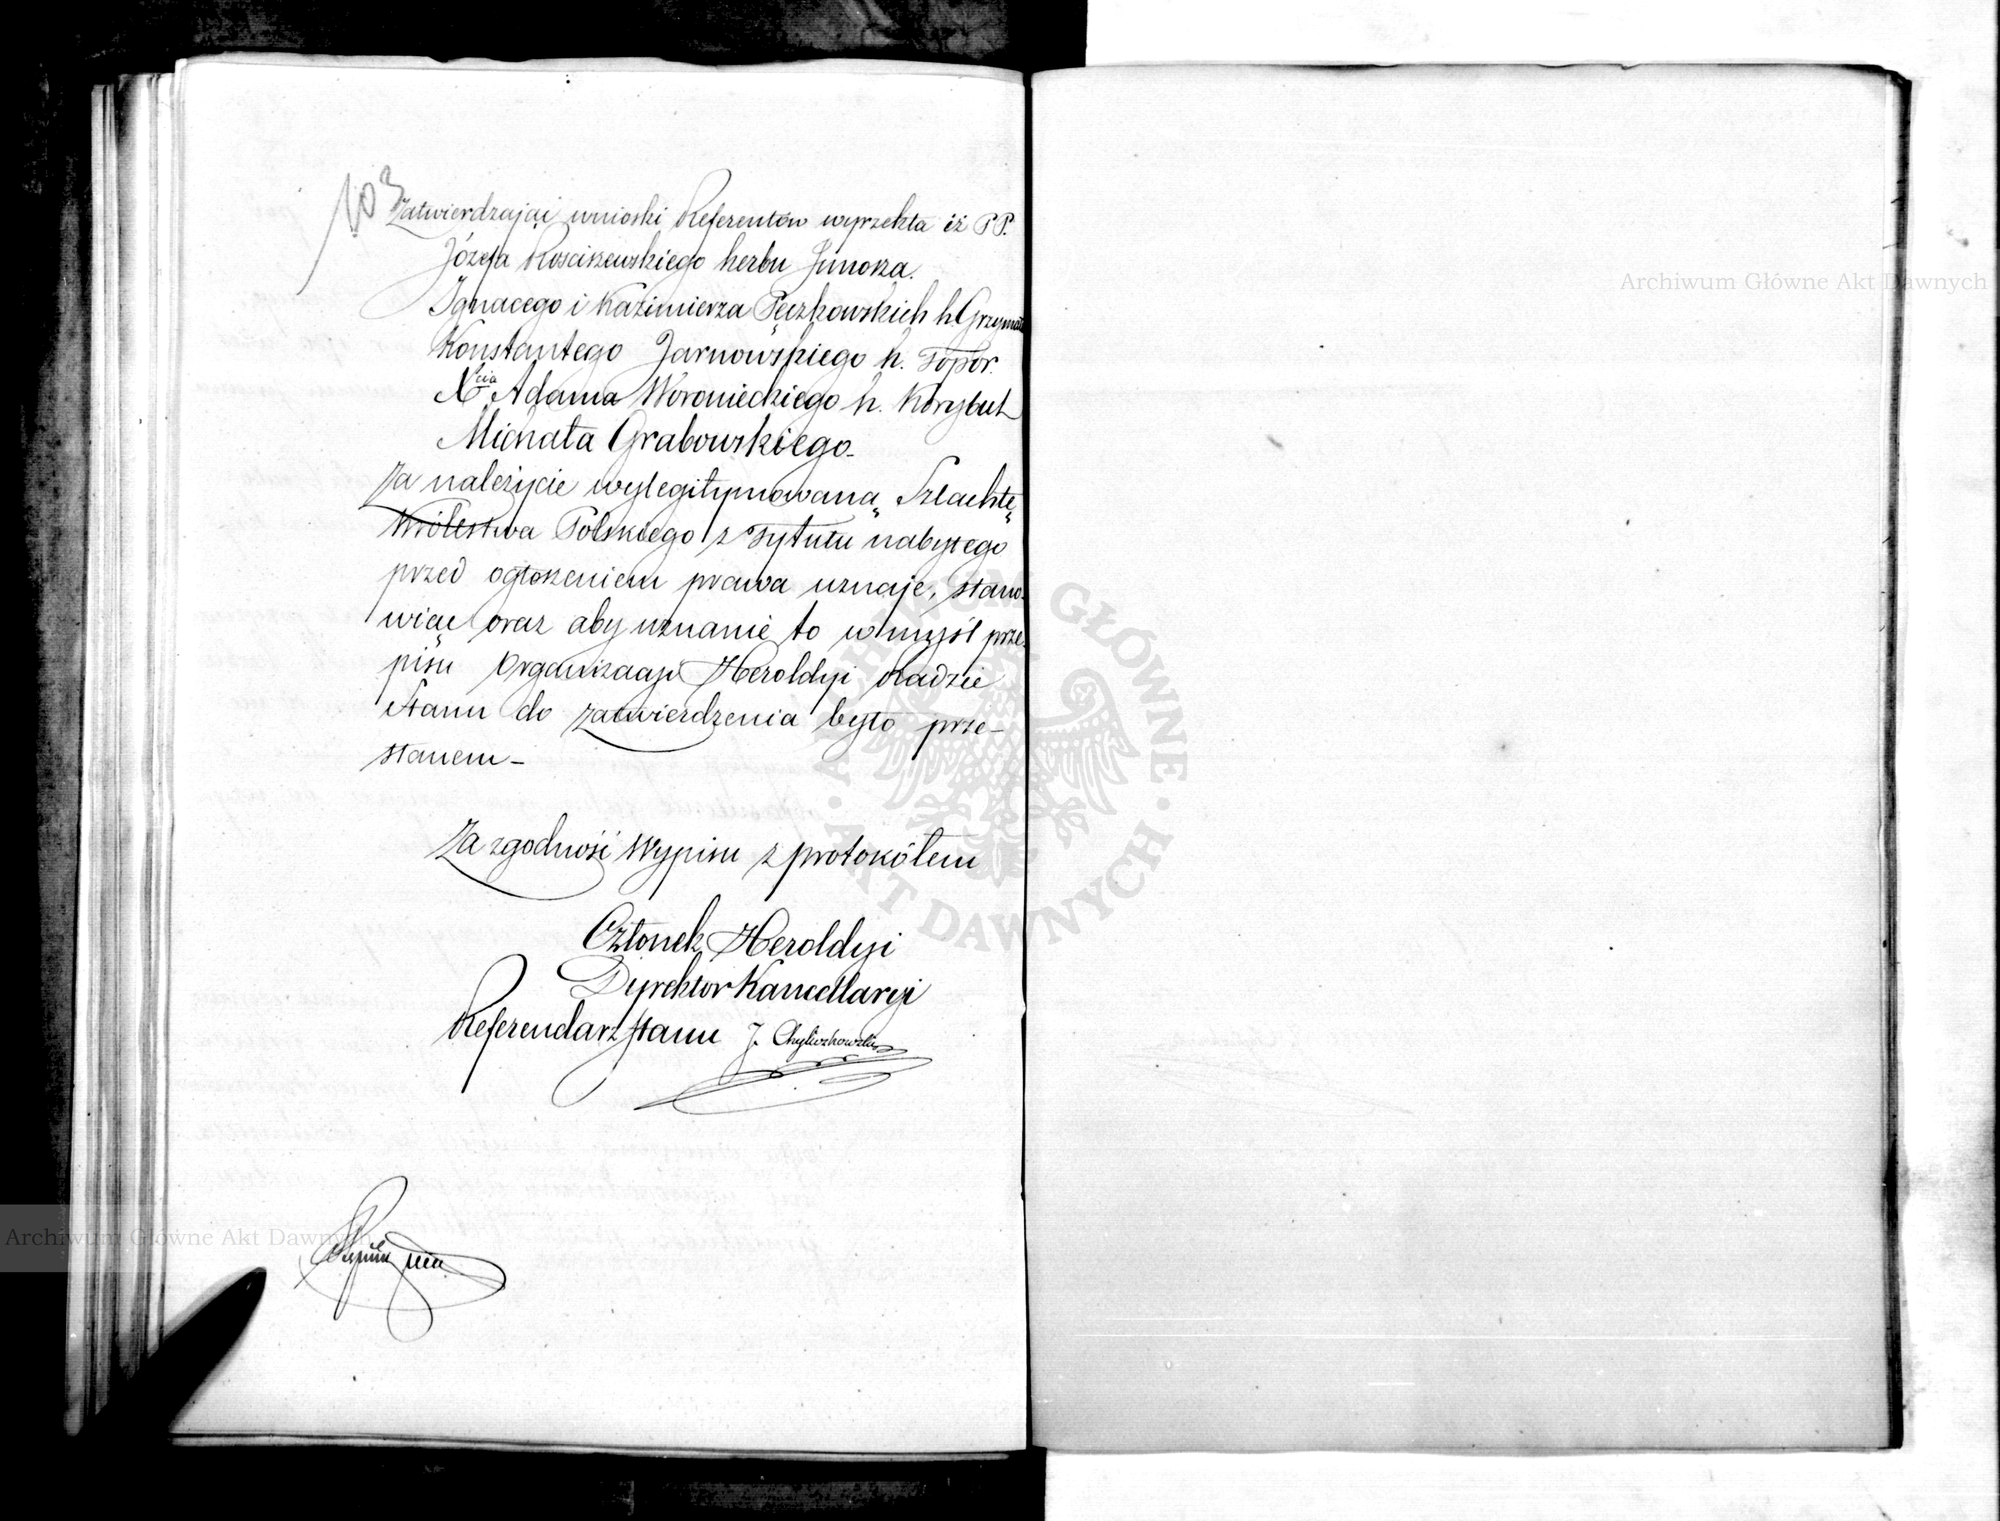 103
Zatwierdzając wnioski Referentów wyrzekła iż PP.
Józefa Rościszewskiego herbu Junosza.
Ignacego i Kazimierza Pęczkowskich h. Grzymała
Konstantego Jarnowskiego h. Topór.
Xcia Adama Woronieckiego h. Korybut
Michała Grabowskiego
Za należycie wylegitymowaną Szlachtę
Królestwa Polskiego z tytułu nabytego
przed ogłoszeniem prawa uznaje, stano-
wiąc oraz aby uznanie to w myśl prze-
pisu Organizacyi Heroldyi Radzie
Stanu do zatwierdzenia było prze-
słanem –
Za zgodność Wypisu z protokółem
Członek Heroldyi
Dyrektor Kancellaryi
Referendarz Stanu J. Chyliczkowski
Archiwum Główne Akt Dawnych
Archiwum Główne Akt Dawnych
ARCHIWUM GŁÓWNE · AKT DAWNYCH ·